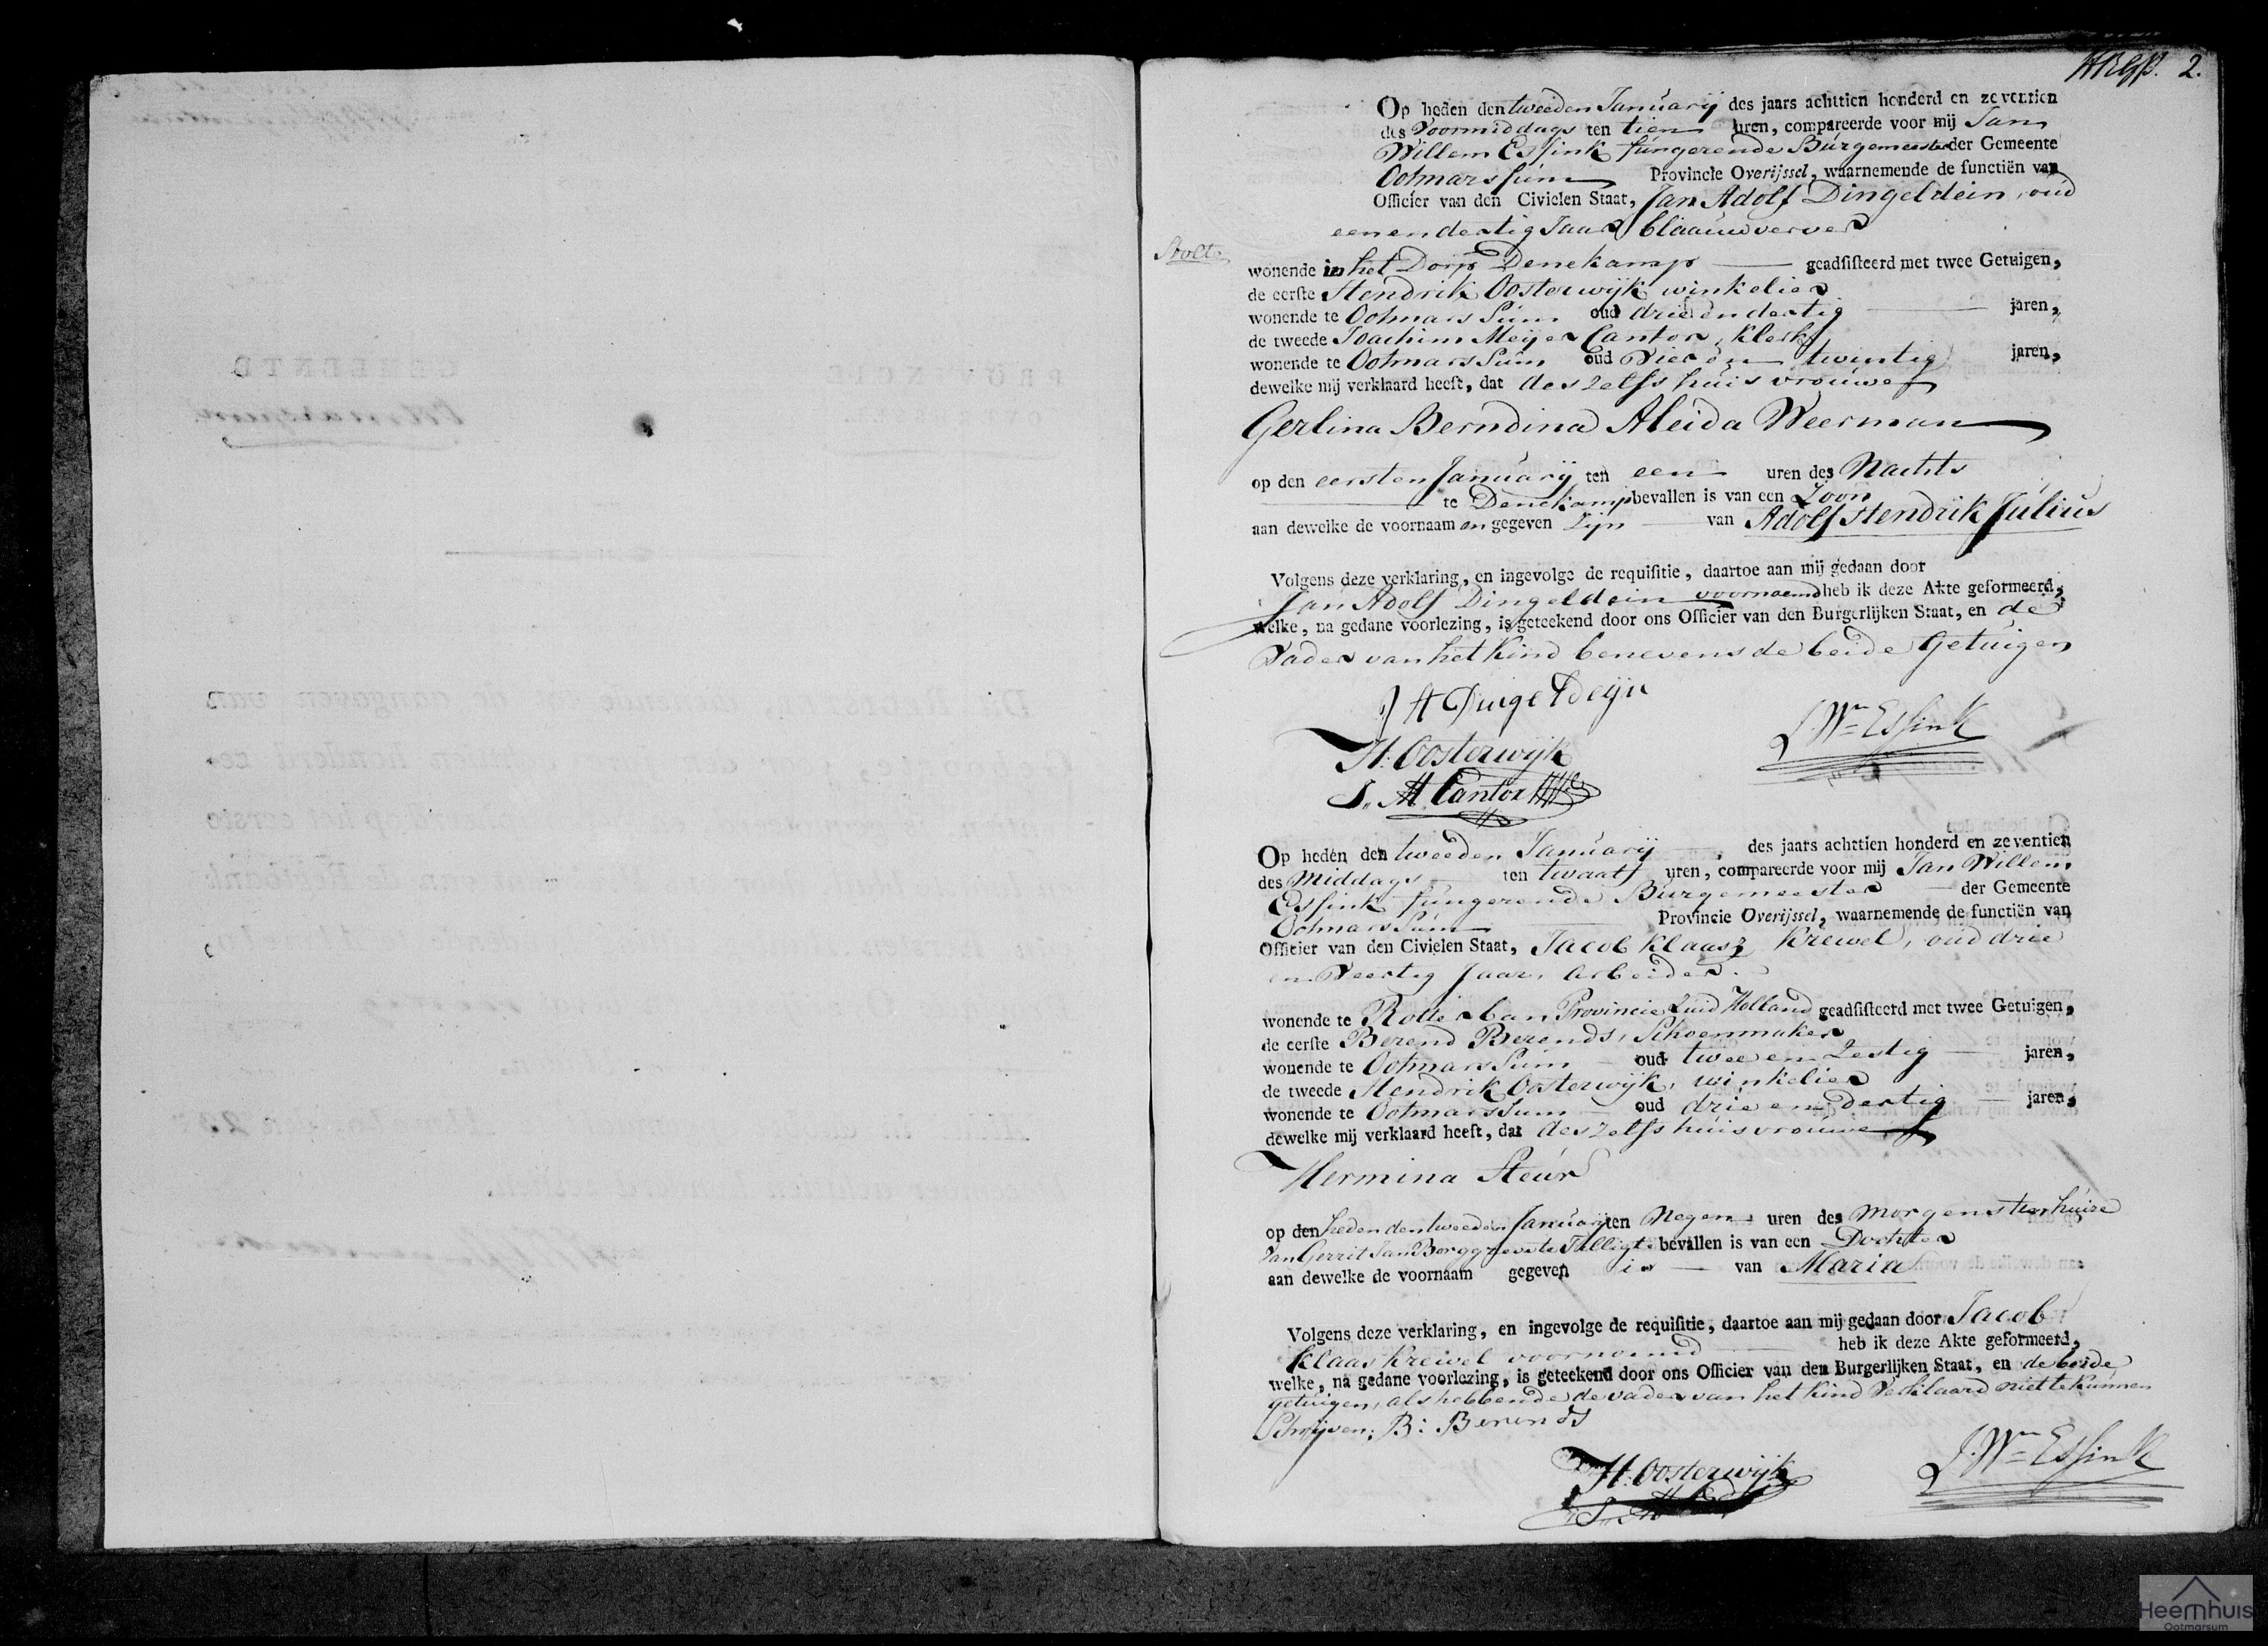 2.
Op heden den tweeden Januarij des jaars achttien honderd en zeventien
des Voormiddags ten tien uren, compareerde voor mij Jan
Willem Essink fungerende Burgemeester der Gemeente
Ootmarssum Provincie Overijssel, waarnemende de functiën van
Officier van den Civielen Staat, Jan Adolf Dingeldein, oud
eenendertig Jaar Blaauwverver
wonende in het Dorp Denekamp geadsisteerd met twee Getuigen,
de eerste Hendrik Oosterwijk winkelier
wonende te Ootmarssum oud drie en dertig jaren,
de tweede Joachim Meijer Cantor, klerk
wonende te Ootmarssum oud Vier en twintig jaren,
dewelke mij verklaard heeft, dat deszelfs huisvrouwe
Gerlina Berndina Aleida Weerman
op den eersten Januarij ten een uren des Nachts
te Denekamp bevallen is van een Zoon
aan dewelke de voornaam en gegeven zijn van Adolf Hendrik Julius
Volgens deze verklaring, en ingevolge de requisitie, daartoe aan mij gedaan door
Jan Adolf Dingeldein voornoemd heb ik deze Akte geformeerd,
welke, na gedane voorlezing, is geteekend door ons Officier van den Burgerlijken Staat, en de
Vader van het Kind benevens de beide Getuigen
J A Dingeldeijn
J. Wm Essink
H. Oosterwijk
J. M. Cantor
Op heden den tweeden Januarij des jaars achttien honderd en zeventien
des Middags ten twaalf uren, compareerde voor mij Jan Willem
Essink fungerende Burgemeester der Gemeente
Ootmarssum Provincie Overijssel, waarnemende de functiën van
Officier van den Civielen Staat, Jacob Klaasz Krewel, oud drie
en Veertig Jaar, Arbeider.
wonende te Rotterdam Provincie Zuid Holland geadsisteerd met twee Getuigen,
de eerste Berend Berends, Schoenmaker
wonende te Ootmarssum oud twee en Zestig jaren,
de tweede Hendrik Oosterwijk, winkelier
wonende te Ootmarssum oud drie en dertig jaren,
dewelke mij verklaard heeft, dat deszelfs huisvrouwe
Hermina Steur
op den heden den tweeden Januarij ten Negen uren des morgens ten huize
van Gerrit Jan Borggreve te Tilligte bevallen is van een Dochter
aan dewelke de voornaam gegeven is van Maria
Volgens deze verklaring, en ingevolge de requisitie, daartoe aan mij gedaan door Jacob
Klaas Krewel voornoemd heb ik deze Akte geformeerd,
welke, na gedane voorlezing, is geteekend door ons Officier van den Burgerlijken Staat, en de beide
getuigen, als hebbende de vader van het kind Verklaard niet te kunnen
Schrijven. B: Berends
H. Oosterwijk
J. Wm Essink
Heemhuis
Ootmarsum